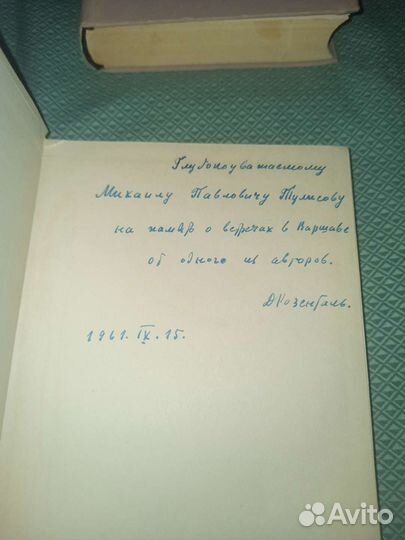 Глубокоуважаемому
Михаилу Павловичу Тулисову
на память о встречах в Варшаве
от одного из авторов.
ДРозенталь.
1961. IX. 15.
Avito